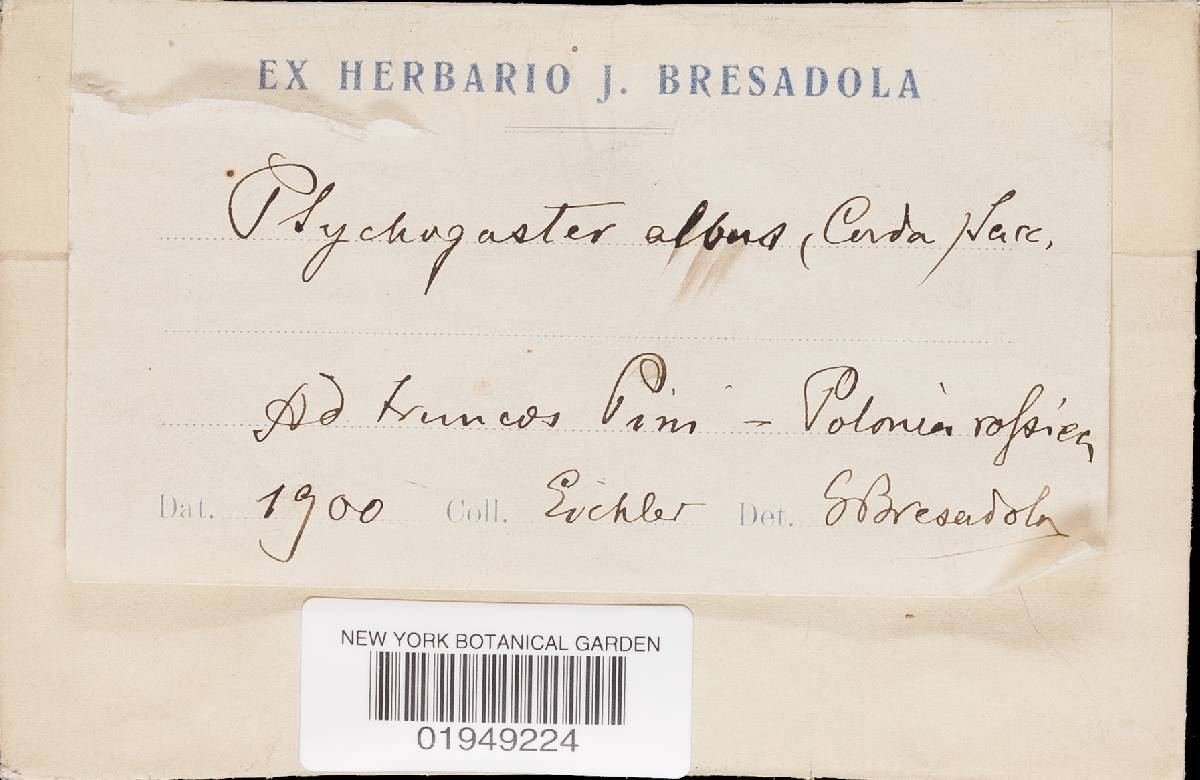 EX HERBARIO J. BRESADOLA
Ptychogaster albus, (Corda) Sacc.
Ad truncos Pini - Polonia rossica
Dat. 1900 Coll. Eichler Det. GBresadola
NEW YORK BOTANICAL GARDEN
01949224